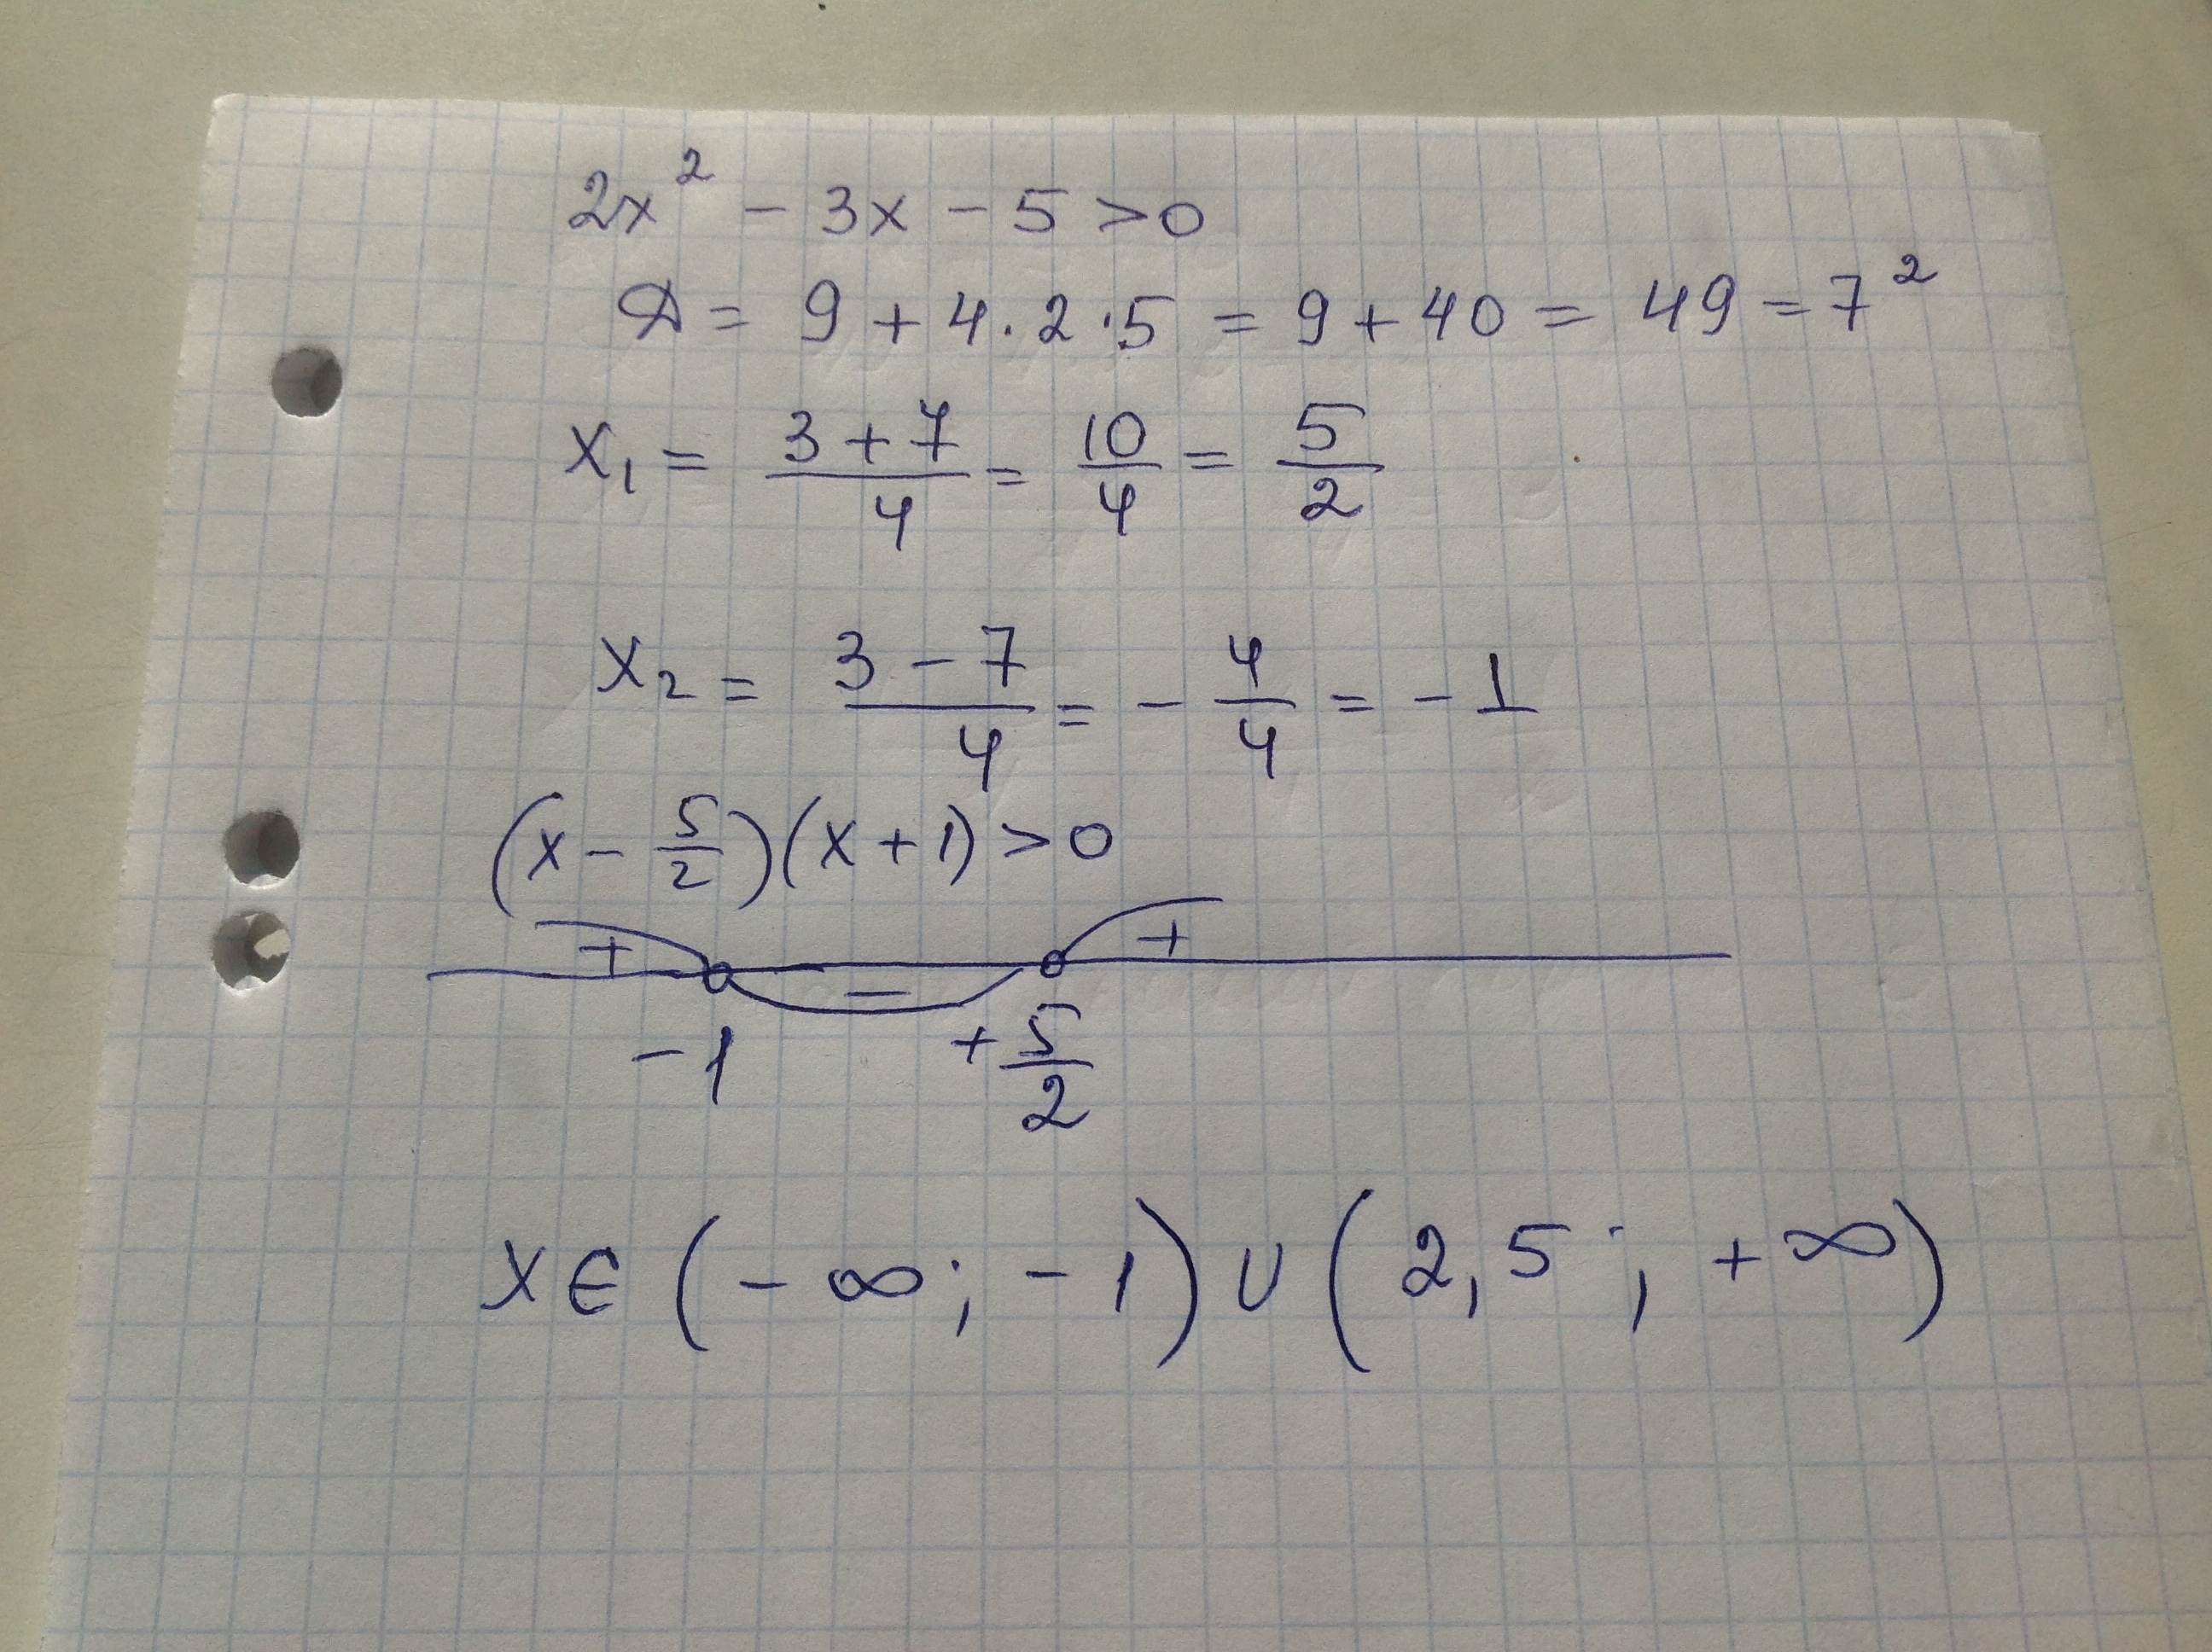 2x² - 3x - 5 > 0
D = 9 + 4 · 2 · 5 = 9 + 40 = 49 = 7²
x₁ = (3 + 7)/4 = 10/4 = 5/2
x₂ = (3 - 7)/4 = - 4/4 = - 1
(x - 5/2)(x + 1) > 0
+ - +
- 1 + 5/2
x ∈ (- ∞; - 1) ∪ (2,5; + ∞)